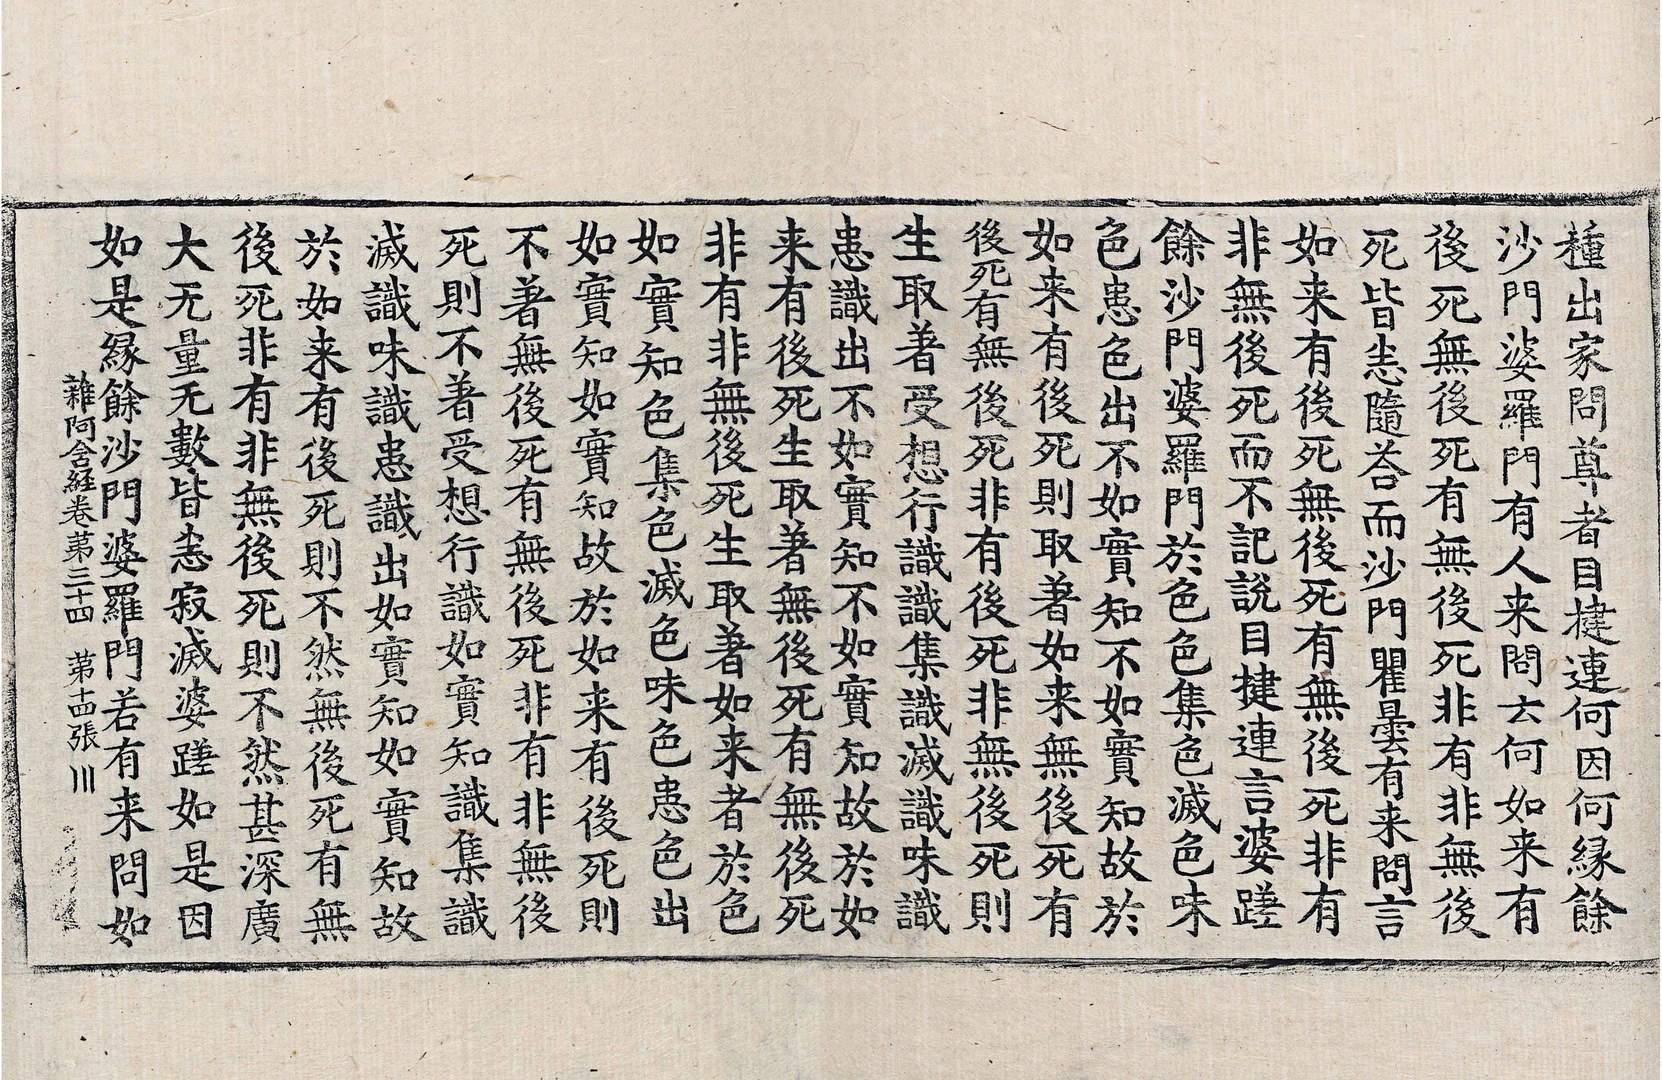 種出家問尊者目揵連何因何縁餘
沙門婆羅門有人来問云何如来有
後死無後死有無後死非有非無後
死皆悉隨荅而沙門瞿曇有来問言
如来有後死無後死有無後死非有
非無後死而不記説目揵連言婆蹉
餘沙門婆羅門於色色集色滅色味
色患色出不如實知不如實知故於
如来有後死則取著如来無後死有
後死有無後死非有後死非無後死則
生取著受想行識識集識滅識味識
患識出不如實知不如實知故於如
来有後死生取著無後死有無後死
非有非無後死生取著如来者於色
如實知色集色滅色味色患色出
如實知如實知故於如来有後死則
不著無後死有無後死非有非無後
死則不著受想行識如實知識集識
滅識味識患識出如實知如實知故
於如来有後死則不然無後死有無
後死非有非無後死則不然甚深廣
大无量无數皆悉寂滅婆蹉如是因
如是縁餘沙門婆羅門若有来問如
雜阿含経卷第三十四 第十四張 川